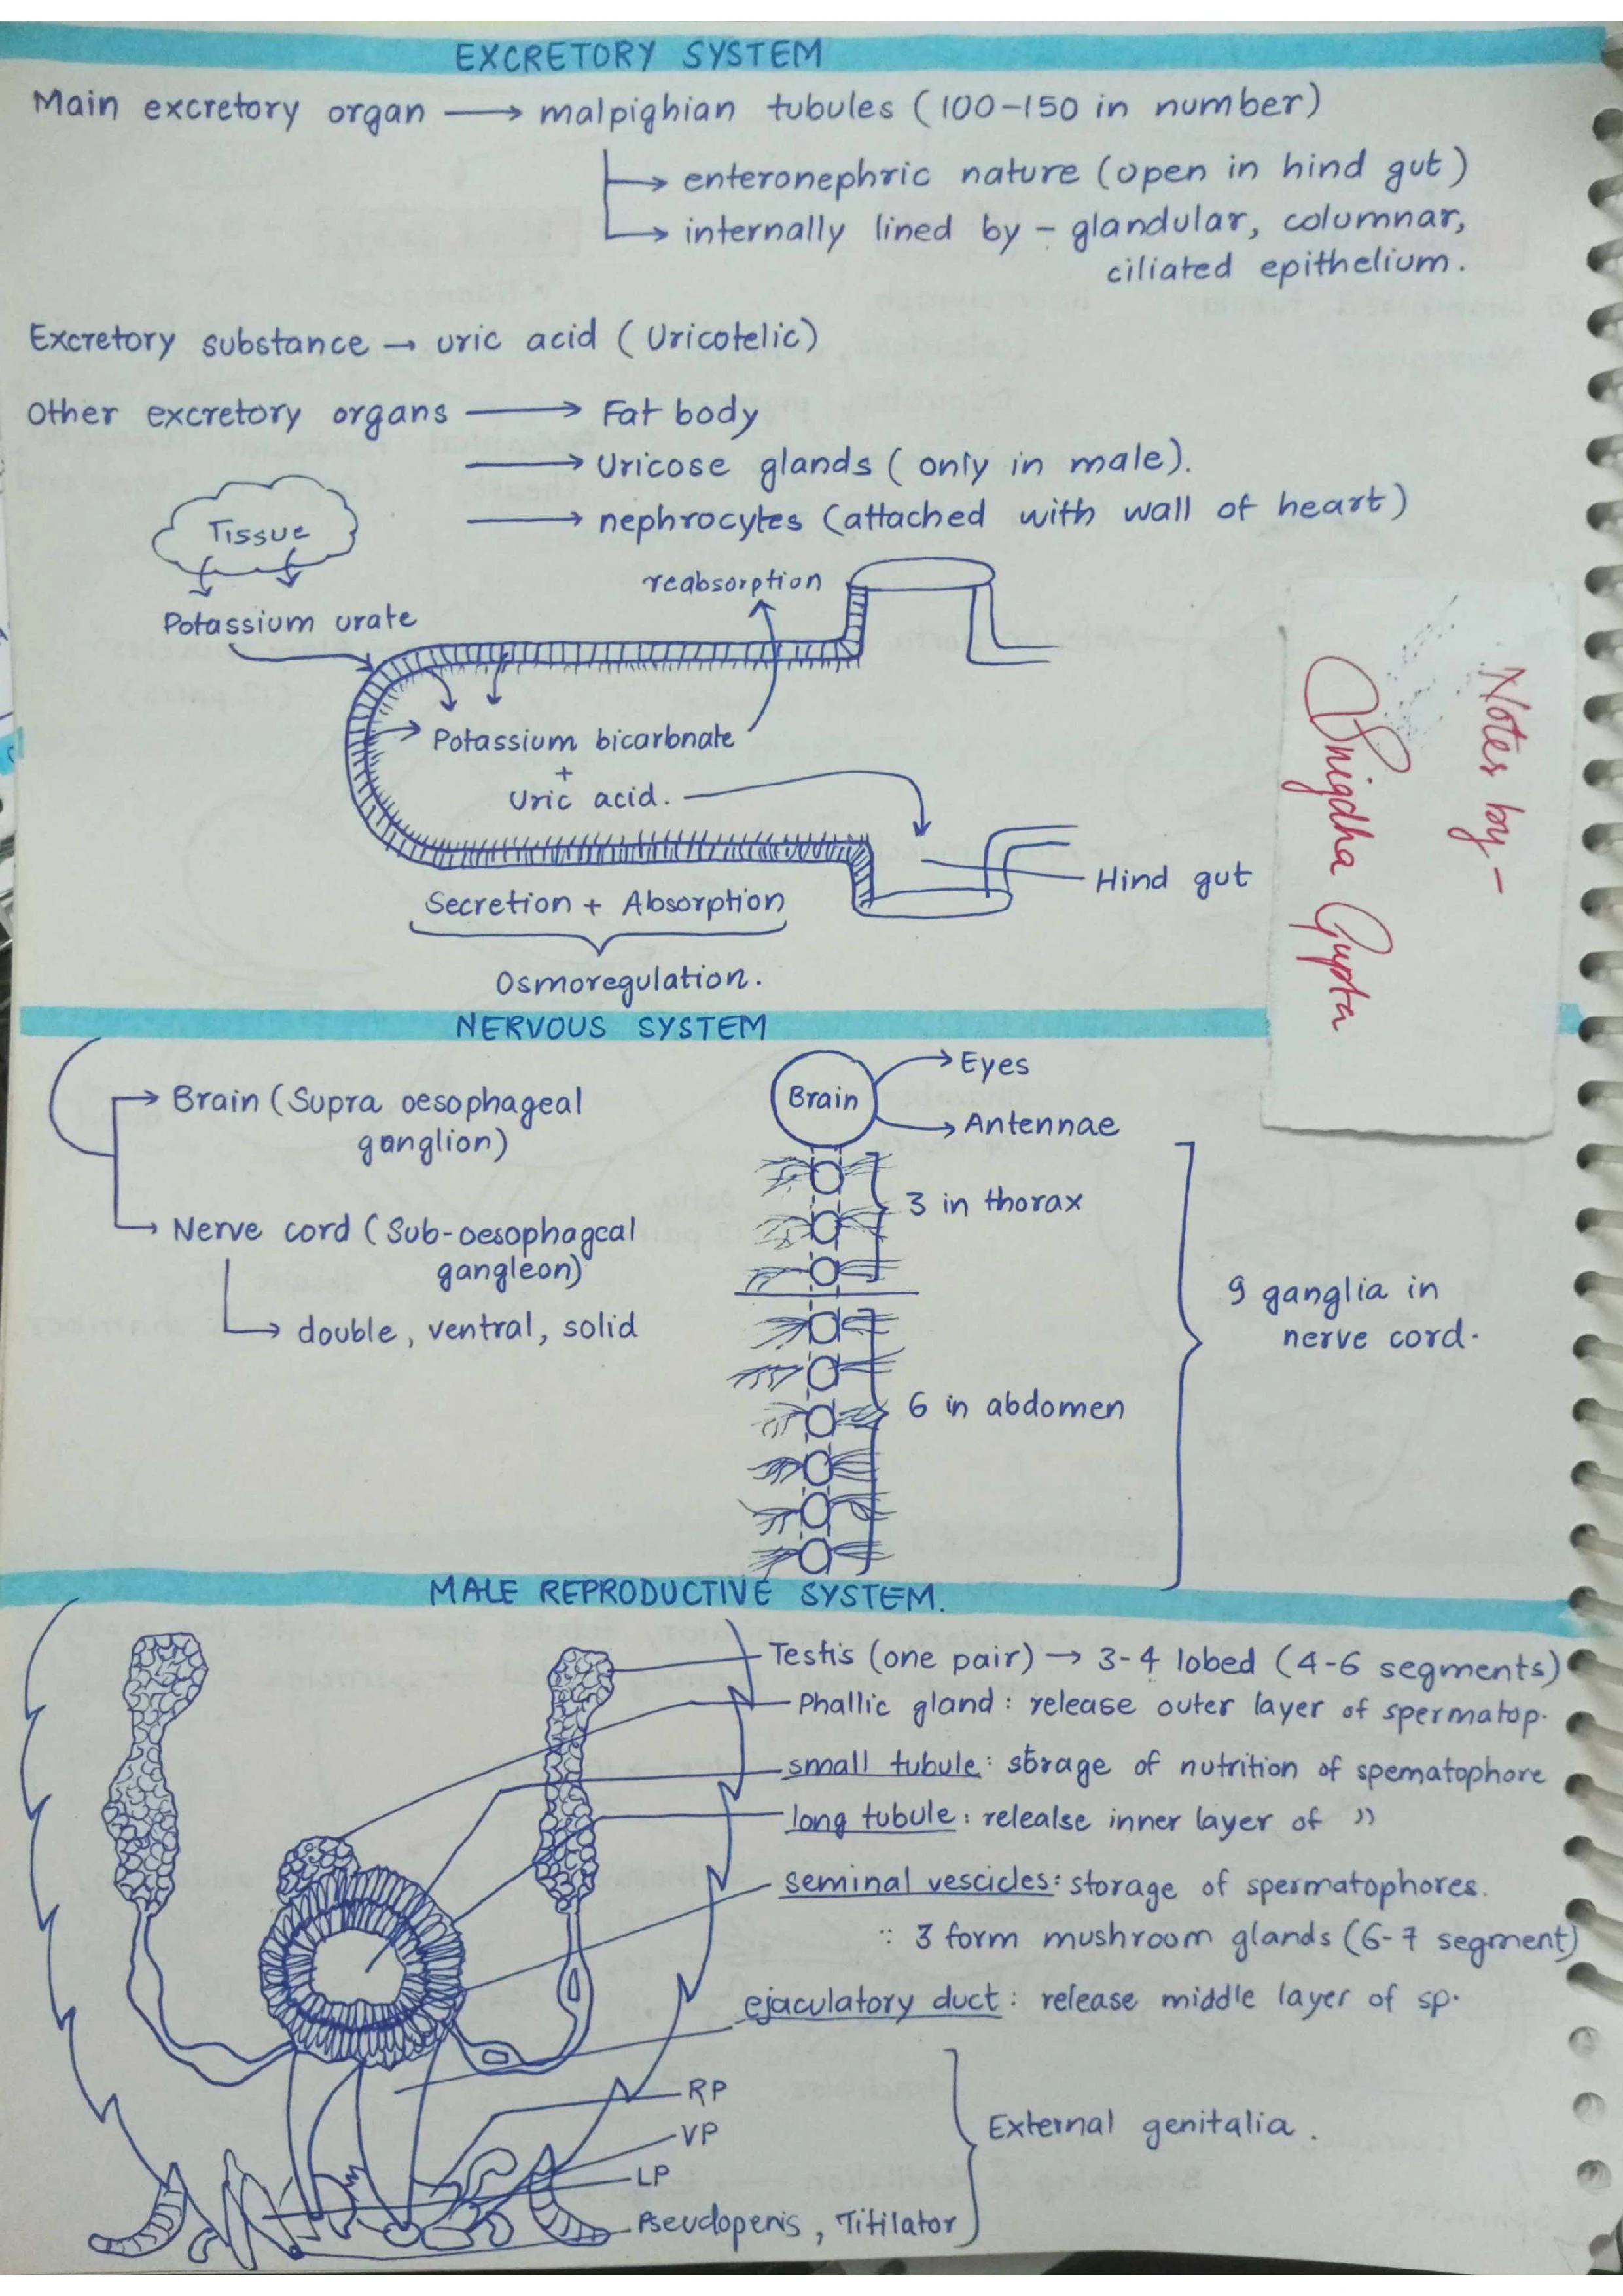 EXCRETORY SYSTEM
Main excretory organ → malpighian tubules (100-150 in number)
→ enteronephric nature (open in hind gut)
→ internally lined by - glandular, columnar,
ciliated epithelium.
Excretory substance → uric acid (Uricotelic)
Other excretory organs → Fat body
→ Uricose glands (only in male).
→ nephrocytes (attached with wall of heart)
Tissue
reabsorption
Potassium urate
Potassium bicarbnate
+
Uric acid.
Hind gut
Secretion + Absorption
Osmoregulation.
Notes by -
Snigdha Gupta
NERVOUS SYSTEM
→ Brain (Supra oesophageal
ganglion)
→ Nerve cord (Sub-oesophageal
gangleon)
→ double, ventral, solid
Brain
Eyes
Antennae
3 in thorax
6 in abdomen
9 ganglia in
nerve cord.
MALE REPRODUCTIVE SYSTEM.
Testis (one pair) → 3-4 lobed (4-6 segments)
Phallic gland : release outer layer of spermatop.
small tubule : storage of nutrition of spematophore
long tubule : relealse inner layer of "
seminal vescicles : storage of spermatophores.
∵ 3 form mushroom glands (6-7 segment)
ejaculatory duct : release middle layer of sp.
RP
VP
LP
Pseudopenis, Titilator
External genitalia.